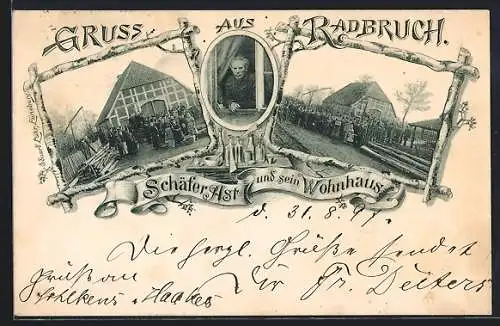 GRUSS AUS RADBRUCH.
Schäfer Ast und sein Wohnhaus
d. 31.8.97.
Die herzl. Grüße sendet
Dir Fr. Deiters
Grüß an